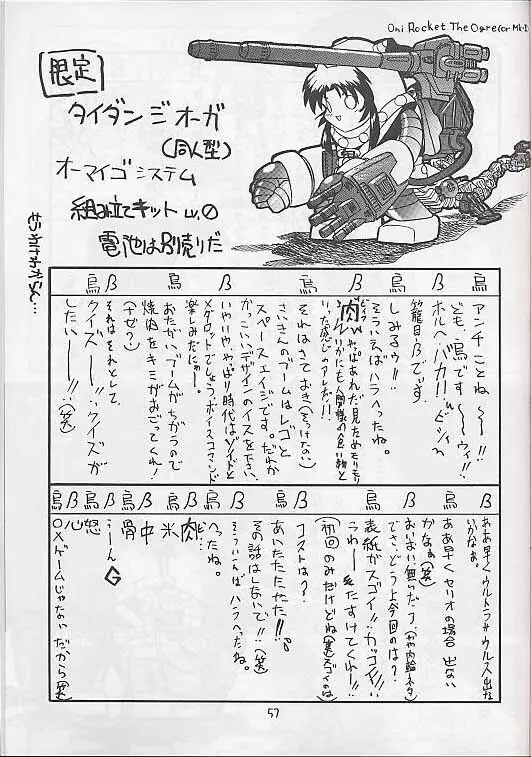 Oni Rocket The Ogre (or Mk-I
限定
タイダンジオーガ
(同人型)
オーマイゴシステム
組み立てキット Lv.0
電池はB別売りだ
烏 β 烏 β 烏 β 烏
アンチことね〜〜!!
ども、烏です ウィ!!
ホルヘ・バカリー
籠目βでぃす。
しみるゥ!!
そういえばハラへったね。
肉
それはさておき(そらけない)
さいきんのブームはレゴと
スペースエイジです。だれか
かっこいいデザインのイスを下さい。
いやいや、やっぱり時代はゾイドと
メダロットでしょう。ボイスコマンド
楽しみだにゃー。
おたがいブームがちがうので
焼肉をキミがおごってくれ!
(なぜ?)
それはそれとして、
クイズ―!!クイズが
したい――!!(笑)
烏 β 烏 β 烏 β 烏 β 烏 β 烏 β
ああ早くウルトラザウルス出な
いかなぁ。
ああ早くセリオの場合 出ない
かなぁ(笑)
おいおい無らだう、(わや内輪ネタ)
でさ、どうよ今回のは?
表紙がスゴイ!!カッコイイ!!
うわー たすけてくれー!!
(初回のみだけどね(笑)スゴイのは)
コストは?
あいたたたやた!!
その話はしないで!!(笑)
そういえばハラへったね。
へったね。
肉
米
中
骨
うーん G
怒
心
○×ゲームじゃない だから(笑)
57